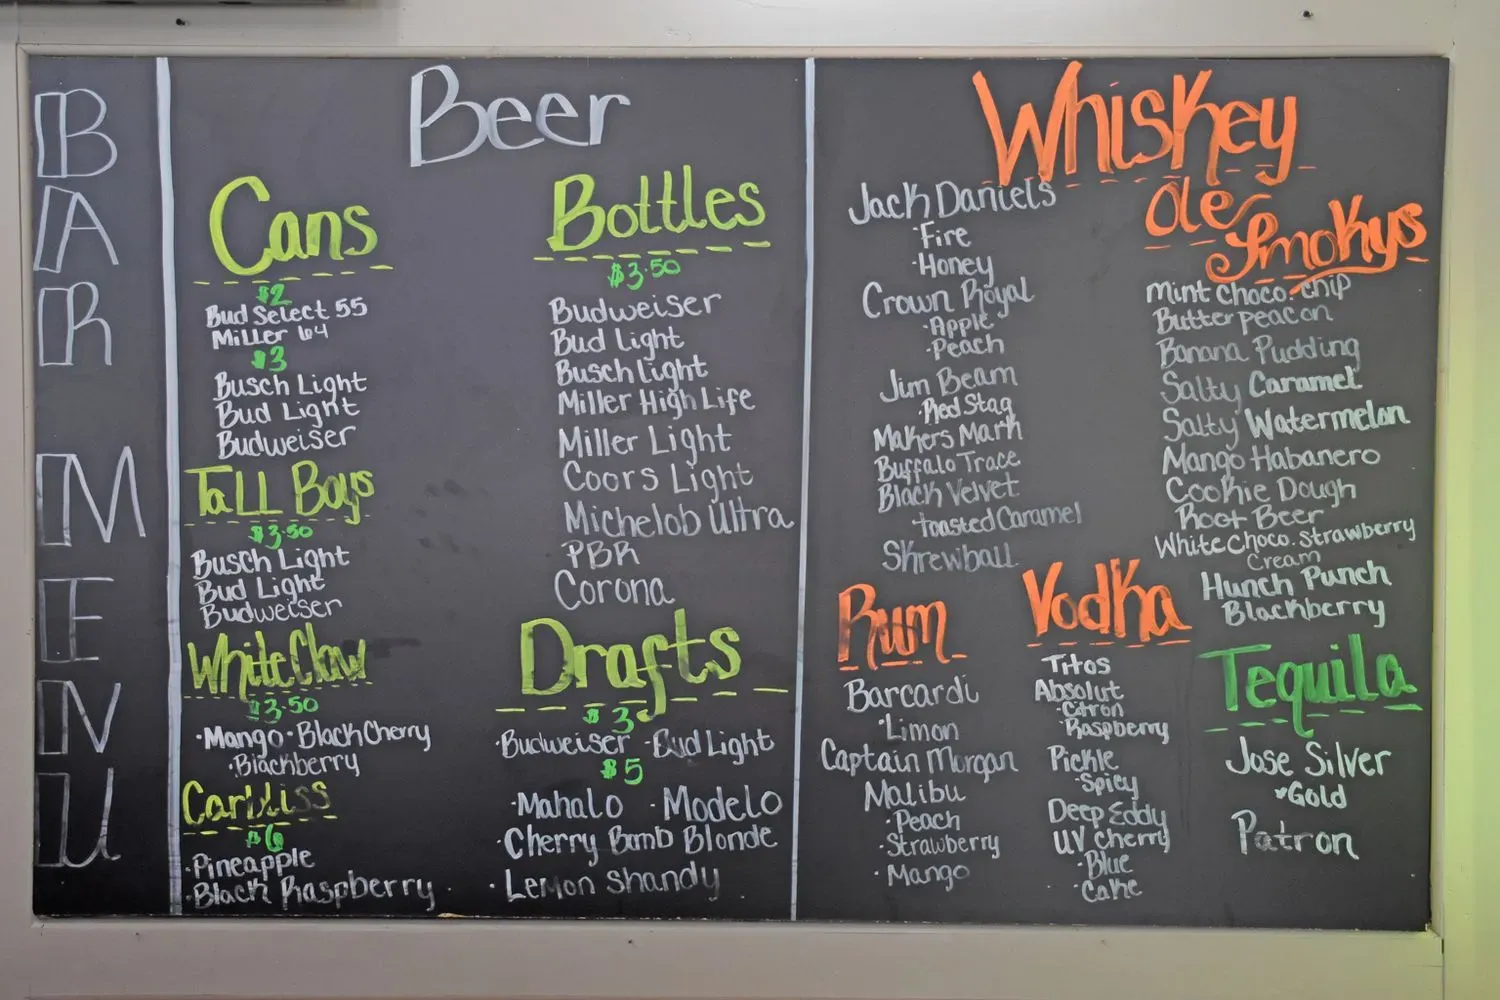 BAR MENU
Beer
Cans
$2
Bud Select 55
Miller 64
$3
Busch Light
Bud Light
Budweiser
Tall Boys
$3.50
Busch Light
Bud Light
Budweiser
White Claw
$3.50
·Mango ·Black Cherry
·Blackberry
Carbliss
$6
·Pineapple
·Black Raspberry
Bottles
$3.50
Budweiser
Bud Light
Busch Light
Miller High Life
Miller Light
Coors Light
Michelob Ultra
PBR
Corona
Drafts
$3
·Budweiser ·Bud Light
$5
·Mahalo ·Modelo
·Cherry Bomb Blonde
·Lemon Shandy
Whiskey
Jack Daniels
·Fire
·Honey
Crown Royal
·Apple
·Peach
Jim Beam
·Red Stag
Makers Mark
Buffalo Trace
Black Velvet
·Toasted Caramel
Skrewball
Ole Smokys
Mint Choco. Chip
Butter peacan
Banana Pudding
Salty Caramel
Salty Watermelon
Mango Habanero
Cookie Dough
Root Beer
White Choco. Strawberry
Cream
Hunch Punch
Blackberry
Rum
Barcardi
·Limon
Captain Morgan
Malibu
·Peach
·Strawberry
·Mango
Vodka
Titos
Absolut
·Citron
·Raspberry
Pickle
·Spicy
Deep Eddy
UV Cherry
·Blue
·Cake
Tequila
Jose Silver
·Gold
Patron